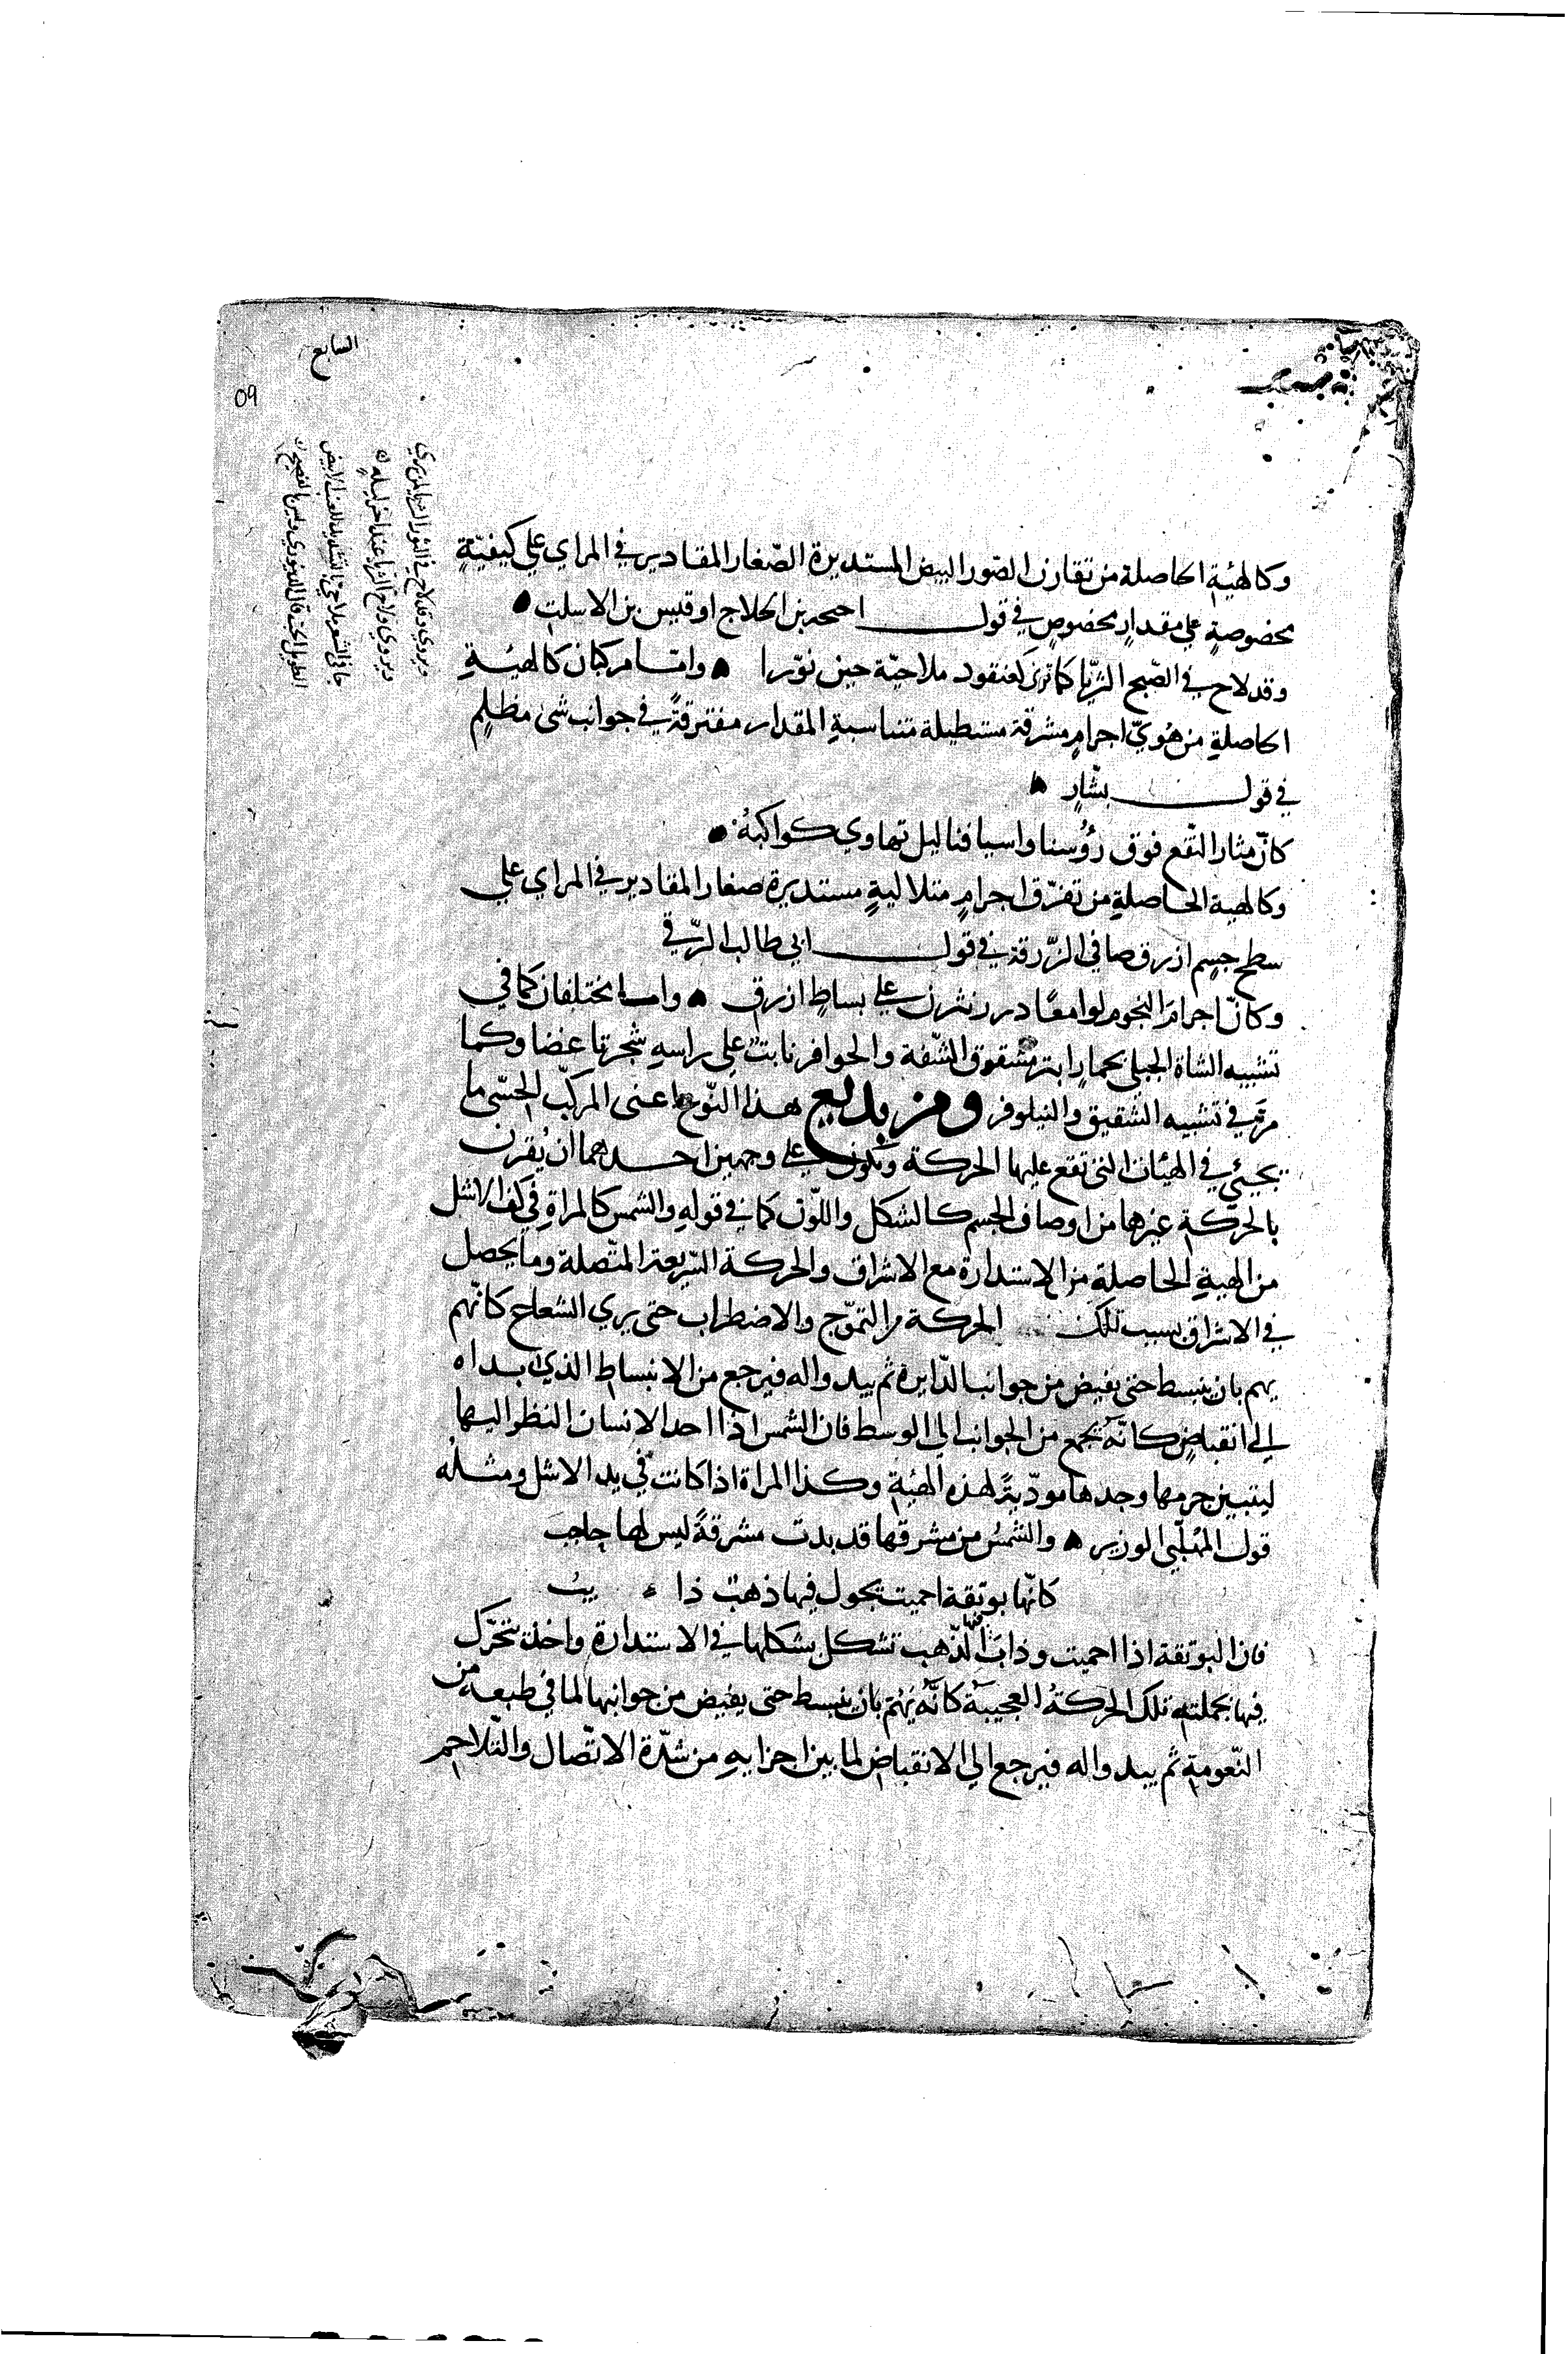 السابع
٥٩
وكالهئية الحاصلة من تقارن الصّور البيض المستديرة الصّغار المقادير في المراي علي كيفيّةٍ
مخصوصةٍ علي مقدارٍ مخصوصٍ في قول احيحه بن الحلاج او قيس بن الاسلت
وقد لاح في الصّبح الثريّا كما تري كعنقود ملاحيّة حين نوّرا وامّا مركبان كالهئيةِ
الحاصلةِ من هُويّ اجرامٍ مشرقة مستطيلة متناسبةِ المقدار مفترقةً في جوانب شئ مظلمٍ
في قول بشّارٍ
كانّ مثار النّقع فوق رؤُسنا واسيافنا ليل تهاوي كواكبهُ
وكالهية الحاصلةِ من تفرّق اجرامٍ متلاليةٍ مستديرة صغار المقادير في المراي علي
سطح جسمٍ ازرق صافي الزّرقة في قول ابي طالب الرّقي
وكانّ اجرامَ النجوم لوامعًا درر نثرن علي بساطٍ ازرق واما مختلفان كما في
تشبيه الشاة الجبلي بحمارٍ ابتر مشقوق الشّفة والحوافر نابت علي راسه شجرتا غضا وكما
مرّ في تشبيه الشقيق والنيلوفر ومن بديع هذا النّوع اعني المركبّ الحسّي ما
يجيئي في الهئيات التي تقع عليها الحركة وتكون علي وجهين احدهما ان يُقرن
بالحركة غيرها من اوصاف الجسم كالشكل واللّون كما في قوله والشمس كالمراةِ في كف الاشل
من الهيةِ الحاصلةِ من الاستدارة مع الاشراق والحركة السّريعة المتّصلة وما يحصل
في الاشراق بسبب تلك الحركة من التموّج والاضطراب حتى يري الشعاع كانّهم
يهم بان ينبسط حتى يفيض من جوانب الدّايرة ثم يبدواله فيرجع من الانبساط الذي بداه
الي انقباضٍ كانّهُ يجمع من الجوانب الي الوسط فان الشمس اذا احد الانسان النظر اليها
ليتبين جرمها وجدها مودّيةً لهذه الهئية وكذا المراة اذا كانت في يد الاشل ومثلُه
قول المُهلّبي الوزير والشمسُ من مشرقها قد بدت مشرقةً ليس لها حاجبَ
كانّها بوتقة احميت يجول فيها ذهبٌ ذا يبُ
فان البوتقة اذا احميت وذاب فيها الذّهب تشكل بشكلها في الاستدارة واخذ يتحرّك
فيها بجملته تلك الحركةُ العجيبةَ كانّهُ يَهُمّ بان ينبسط حتى يفيض من جوانبها لما في طبعه من
النّعومةِ ثم يبدواله فيرجع الي الانقباض لما بين اجزايهِ من شدّة الاتّصال والتّلاحم